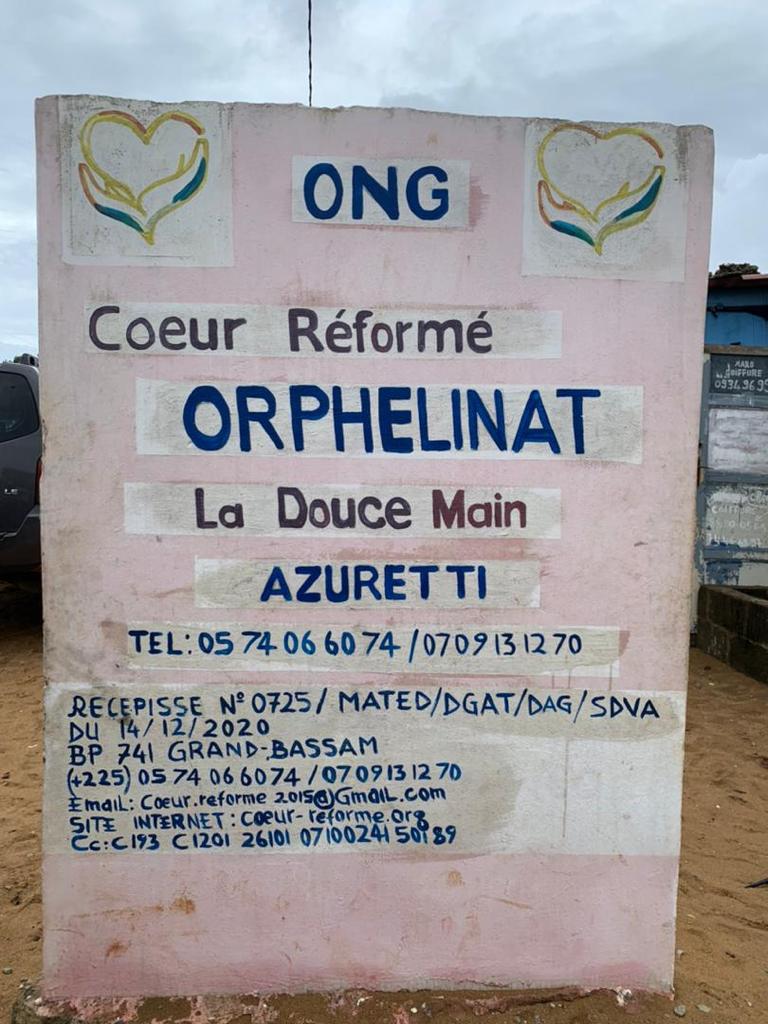 ONG
Coeur Réformé
ORPHELINAT
La Douce Main
AZURETTI
TEL: 05 74 06 60 74 / 07 09 13 12 70
RECEPISSE N° 0725/ MATED/DGAT/DAG/SDVA
DU 14/12/2020
BP 741 GRAND-BASSAM
(+225) 05 74 06 60 74 / 07 09 13 12 70
Email: Coeur.reforme 2015@Gmail.com
SITE INTERNET: coeur-reforme.org
Cc: C193 C1201 26101 07100241 501 89
COIFFURE
LE